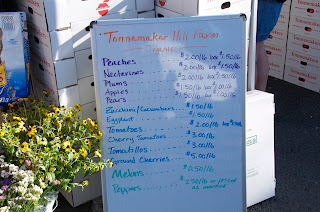 Tonnemaker Hill Farm
Organic
Peaches $2.00/lb box $1.50/lb
Nectarines $2.00/lb box $1.50/lb
Plums $2.00/lb box $1.50/lb
Apples $1.50/lb box
Pears $1.50/lb box
Zucchini/Cucumbers $1.50/lb
Eggplant $1.50/lb
Tomatoes $2.00/lb box
Cherry Tomatoes $3.00/lb
Tomatillos $3.00/lb
Ground Cherries $5.00/lb
Melons $0.50/lb
Peppers $2.50/lb or priced
as marked